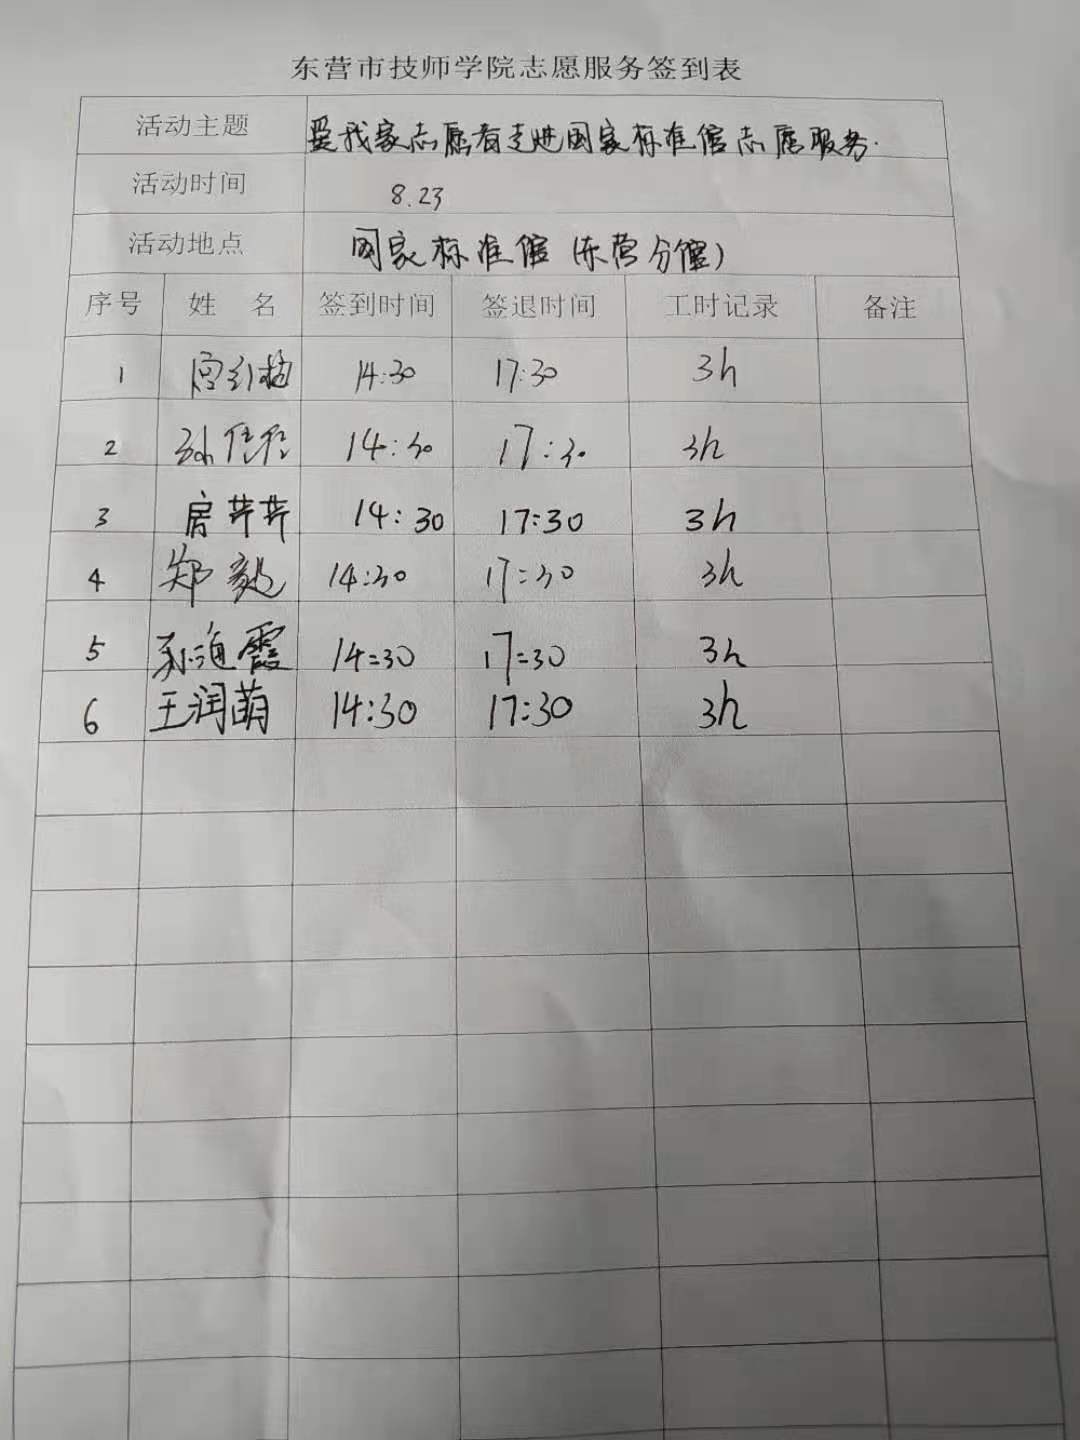 东营市技师学院志愿服务签到表
活动主题 爱我家志愿者走进国家标准馆志愿服务.
活动时间 8.23
活动地点 国家标准馆(东营分馆)
序号 姓 名 签到时间 签退时间 工时记录 备注
1 14:30 17:30 3h
2 孙佳佳 14:30 17:30 3h
3 房芹芹 14:30 17:30 3h
4 郑毅 14:30 17:30 3h
5 孙海霞 14:30 17:30 3h
6 王润萌 14:30 17:30 3h